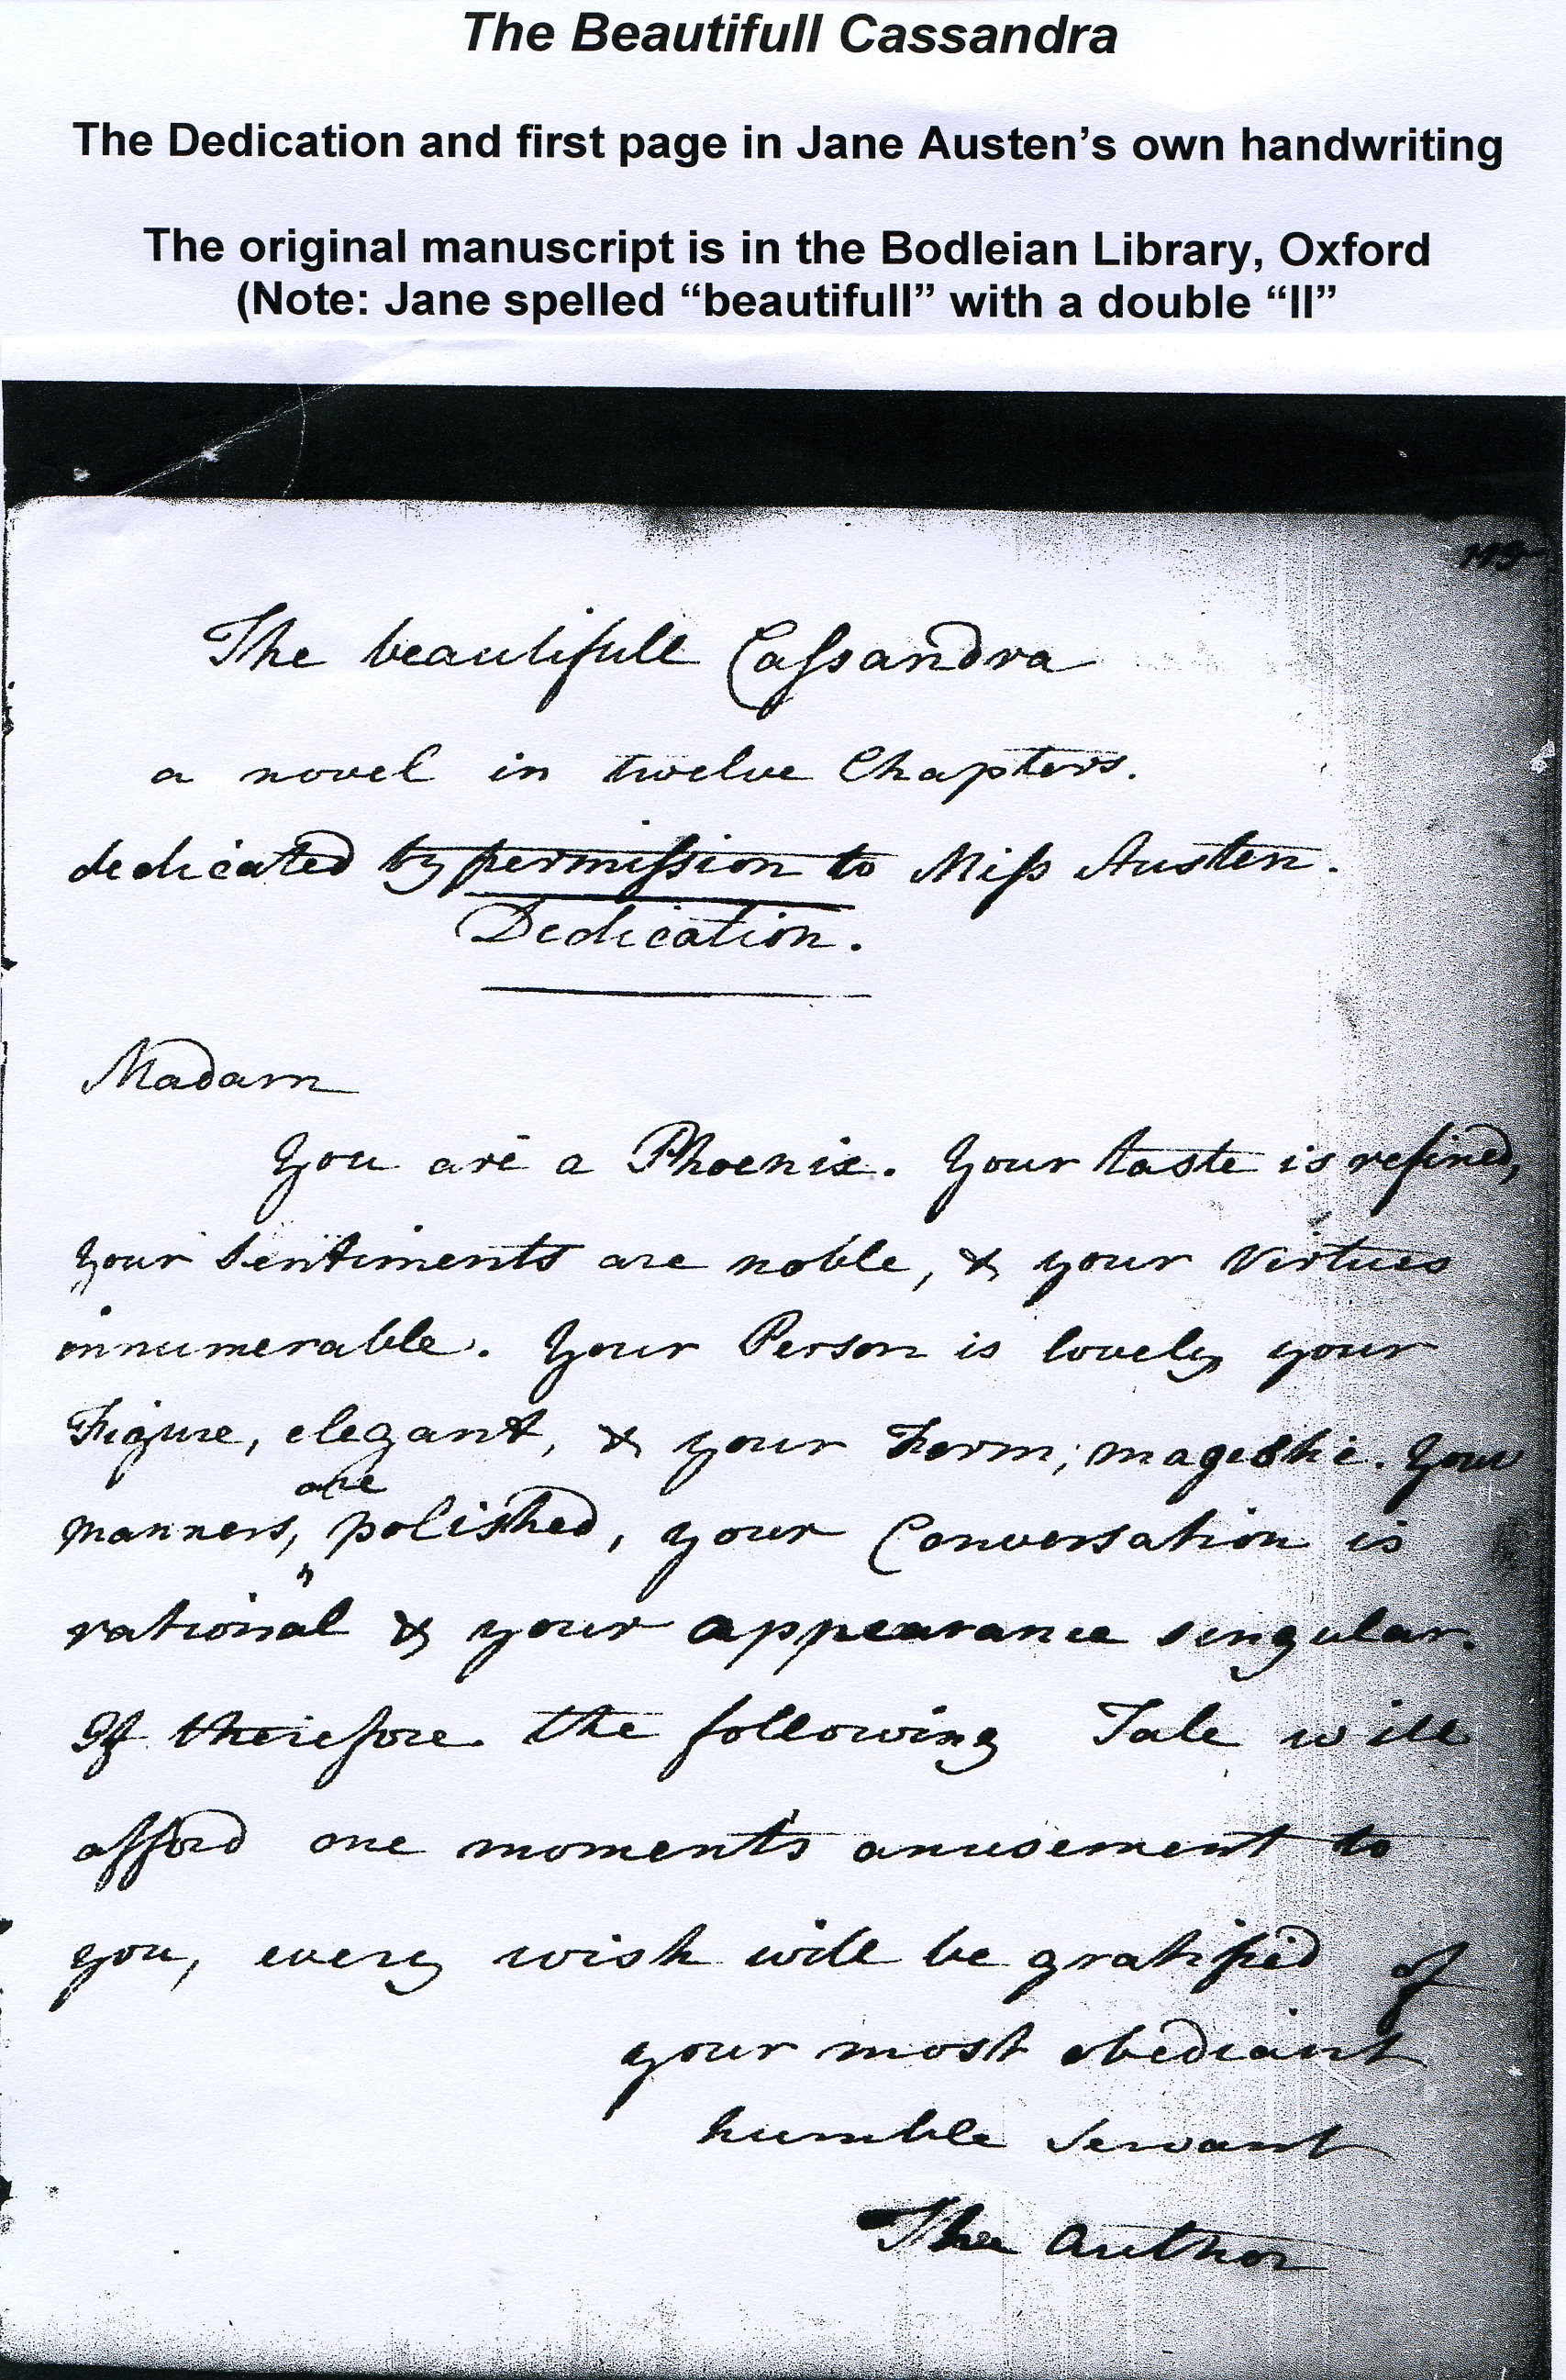 The Beautifull Cassandra
The Dedication and first page in Jane Austen’s own handwriting
The original manuscript is in the Bodleian Library, Oxford
(Note: Jane spelled “beautifull” with a double “ll”
The beautifull Cassandra
a novel in twelve Chapters.
dedicated by permission to Miss Austen.
Dedication.
Madam
You are a Phoenix. Your taste is refined,
your Sentiments are noble, & your Virtues
innumerable. Your Person is lovely, your
Figure, elegant, & your Form, magestic. Your
are
manners, polished, your Conversation is
rational & your appearance singular.
If therefore the following Tale will
afford one moment's amusement to
you, every wish will be gratified of
your most obediant
humble Servant
The Author